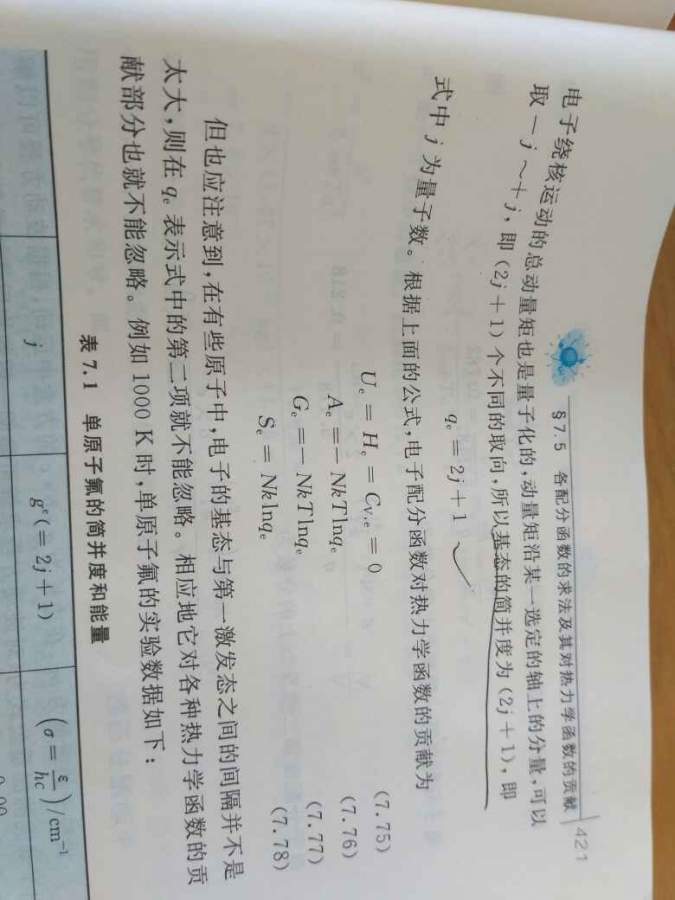 §7.5 各配分函数的求法及其对热力学函数的贡献 421
电子绕核运动的总动量矩也是量子化的,动量矩沿某一选定的轴上的分量,可以
取-j~+j,即(2j+1)个不同的取向,所以基态的简并度为(2j+1),即
qₑ=2j+1
式中j为量子数。根据上面的公式,电子配分函数对热力学函数的贡献为
Uₑ=Hₑ=C_V,ₑ=0 (7.75)
Aₑ=-NkTlnqₑ (7.76)
Gₑ=-NkTlnqₑ (7.77)
Sₑ=Nklnqₑ (7.78)
但也应注意到,在有些原子中,电子的基态与第一激发态之间的间隔并不是
太大,则在qₑ表示式中的第二项就不能忽略。相应地它对各种热力学函数的贡
献部分也就不能忽略。例如1000 K时,单原子氟的实验数据如下:
表7.1 单原子氟的简并度和能量
j gᵉ(=2j+1) (σ=ε/hc)/cm⁻¹